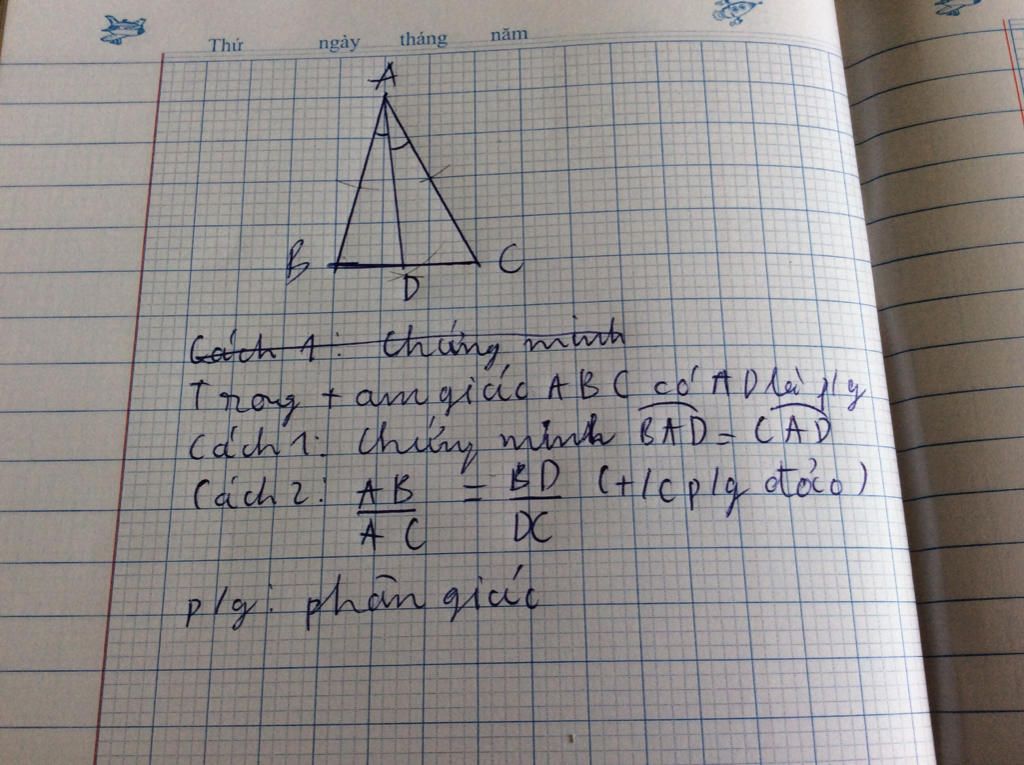 Thứ ngày tháng năm
A
B C
D
Cách 1: Chứng minh
Trong tam giác ABC có AD là p/g
Cách 1: Chứng minh BAD = CAD
Cách 2: AB/AC = BD/DC (t/c p/g đảo)
p/g: phân giác